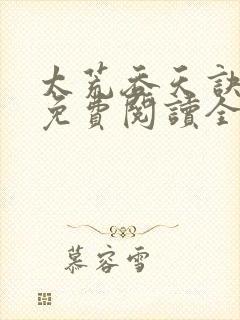 大荒吞天訣
免費閱讀全
慕容雪